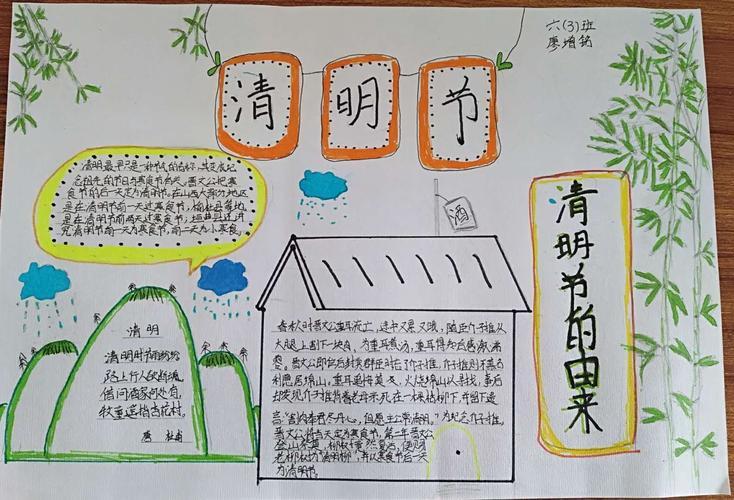 六(3)班
廖增铭
清明节
清明最早只是一种节气的名称,其变成纪
念祖先的节日与寒食节有关。晋文公把寒
食节的后一天定为清明节。在山西大部分地区
是在清明节前一天过寒食节,榆社县等地
是在清明节前两天过寒食节,垣曲县还讲
究清明节前一天为寒食节,前二天为小寒食。
酒
清明节的由来
清明
清明时节雨纷纷
路上行人欲断魂
借问酒家何处有
牧童遥指杏花村。
唐 杜甫
春秋时晋文公重耳流亡,途中又累又饿,随臣介子推从
大腿上割下一块肉,为重耳煮汤,重耳得知后感激涕
零。晋文公即位后封赏群臣时忘了介子推,介子推则不慕名
利隐居绵山,重耳追悔莫及,火烧绵山以寻找,事后
却发现介子推背着老母死在一棵枯柳下,并留下遗
言"割肉奉君尽丹心,但愿主公常清明。"为纪念介子推,
晋文公将当天定为寒食节,第二年晋文公
登山祭奠,柳树死而复活,便赐
老柳树为"清明柳",并以寒食节后一天
为清明节。